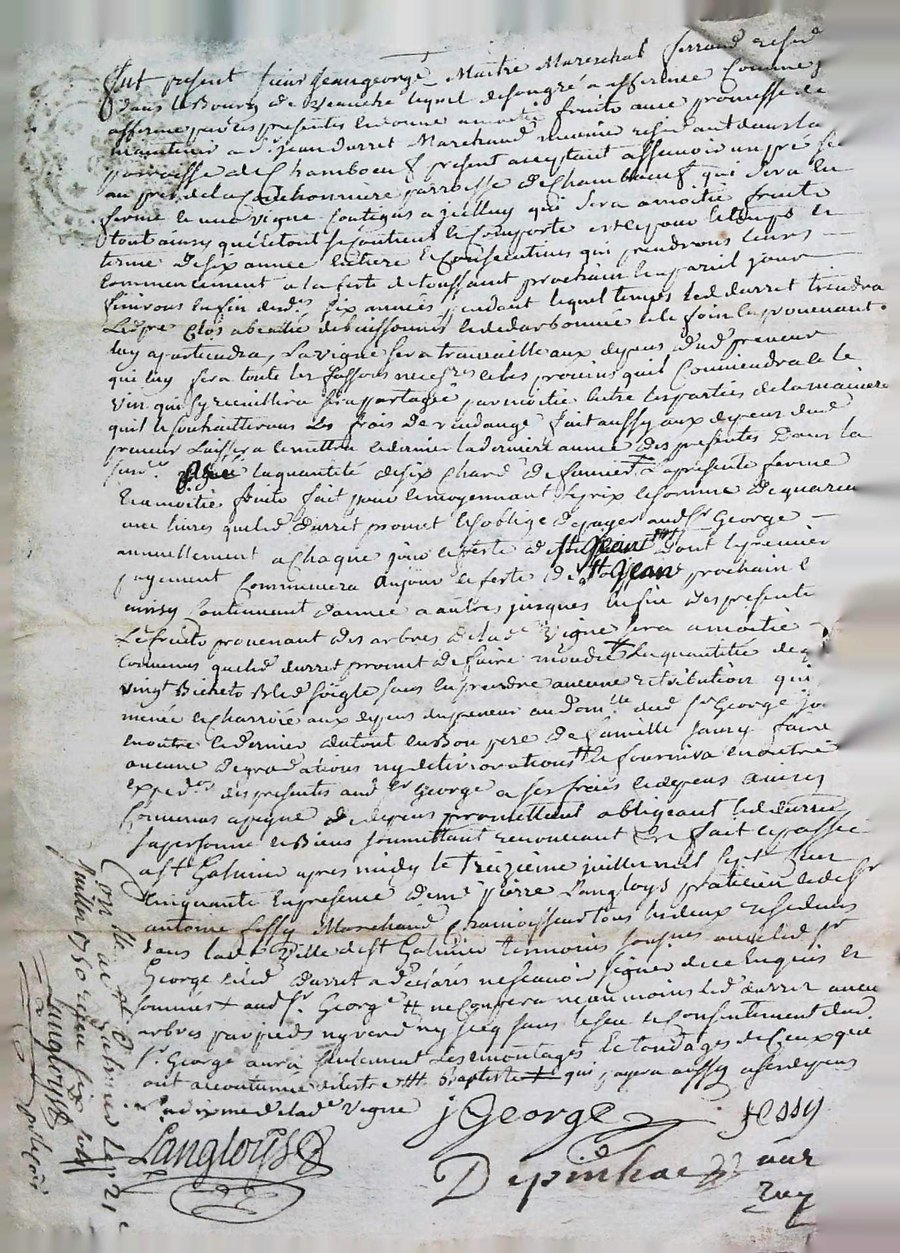 fut present sieur Jean george Maitre Mareschal ferrand resid
dans le Bourg de lequel de son gré a affermé comme p
afferme par ces presentes et donne a moitié fruits avec promesse de
maintenir a Sr Jean durret Marchand residant dans la
parroisse de Chamboeuf present acceptant assavoir un pré
au parroisse de Chambœuf qui sera en
ferme et une vigne contigus a jcelluy qui sera a moitié fruits
tout ainsy qu'il et comporte et ce pour le temps et
terme de six années entiere et consecutives qui prendrons leurs
commencement a la feste de toussaint prochain et a pareil jour
finirons la fin desd. six années, pendant lequel temps led durret tiendra
Le pré Clos et le foin en provenant
luy apartiendra, La vigne sera travaillé aux depens dud preneur
qui luy sera toute les fassons necesres et les provins qu'il conviendra et le
vin qui sy recuillira sera partagé par moitié entre les parties de la maniere
qu'il le souhaitterons Les frais de vendange fait aussy aux depens dud
preneur Laissera et mettra la derniere année des presentes Dans la
la quantité de six Chard de fumier La presente ferme
et a moitié fruits fait pour et moyennant le prix et somme De quarente
livres que led. durret promet et s'oblige de payer aud Sr. George
annuellement a chaque jour et feste de St Jean dont le premier
payement Commencera au jour et feste de St Jean prochain et
ainsy Continuant d'année a autres jusques la fin des presente
Le fruits provenant des arbres de lad. vigne sera a moitié
Convenus que led. durret promet de faire moudre La quantité de
vingt Bichets Bled seigle sans en prendre aucune retribution qui
menée et charroié aux depens du preneur au domlle dud Sr George
en outre du tout en Bon pere de famille sans y faire
aucune degradations ny deteriorations et fournira en outre
expedon des presentes aud Sr George a ses frais et depens ainsy
Convenus a peyne de depens promettant obligeant led durret
sa personne et Biens soumettant renonceant &c fait et passé
a St Galmier apres midy le treizieme juillet mil sept cens
cinquante En presence de me pierre Langloys praticien et de sr
antoine Jessy Marchand Chamoisseur tous les deux residens
dans lad. Ville de St Galmier temoins sousnés avec led sr
George et led durret a declaré ne scavoir signer de ce Enquis et
sommés aud Sr. George ne Coupera neaumoins led durret aucun
arbres par pieds ny verd ny secq sans le sceu et consentement dud.
sr. George aura seulement Les emontages et tondages de Ceux que
ont accoutumé d'estre baptiste qui payera aussy a ses depens
de lad. vigne
j George Jessy
Langloys
Depinhac
Conllé a St Galmier Le 21
juillet 1750 reçeu six sols
Langloys